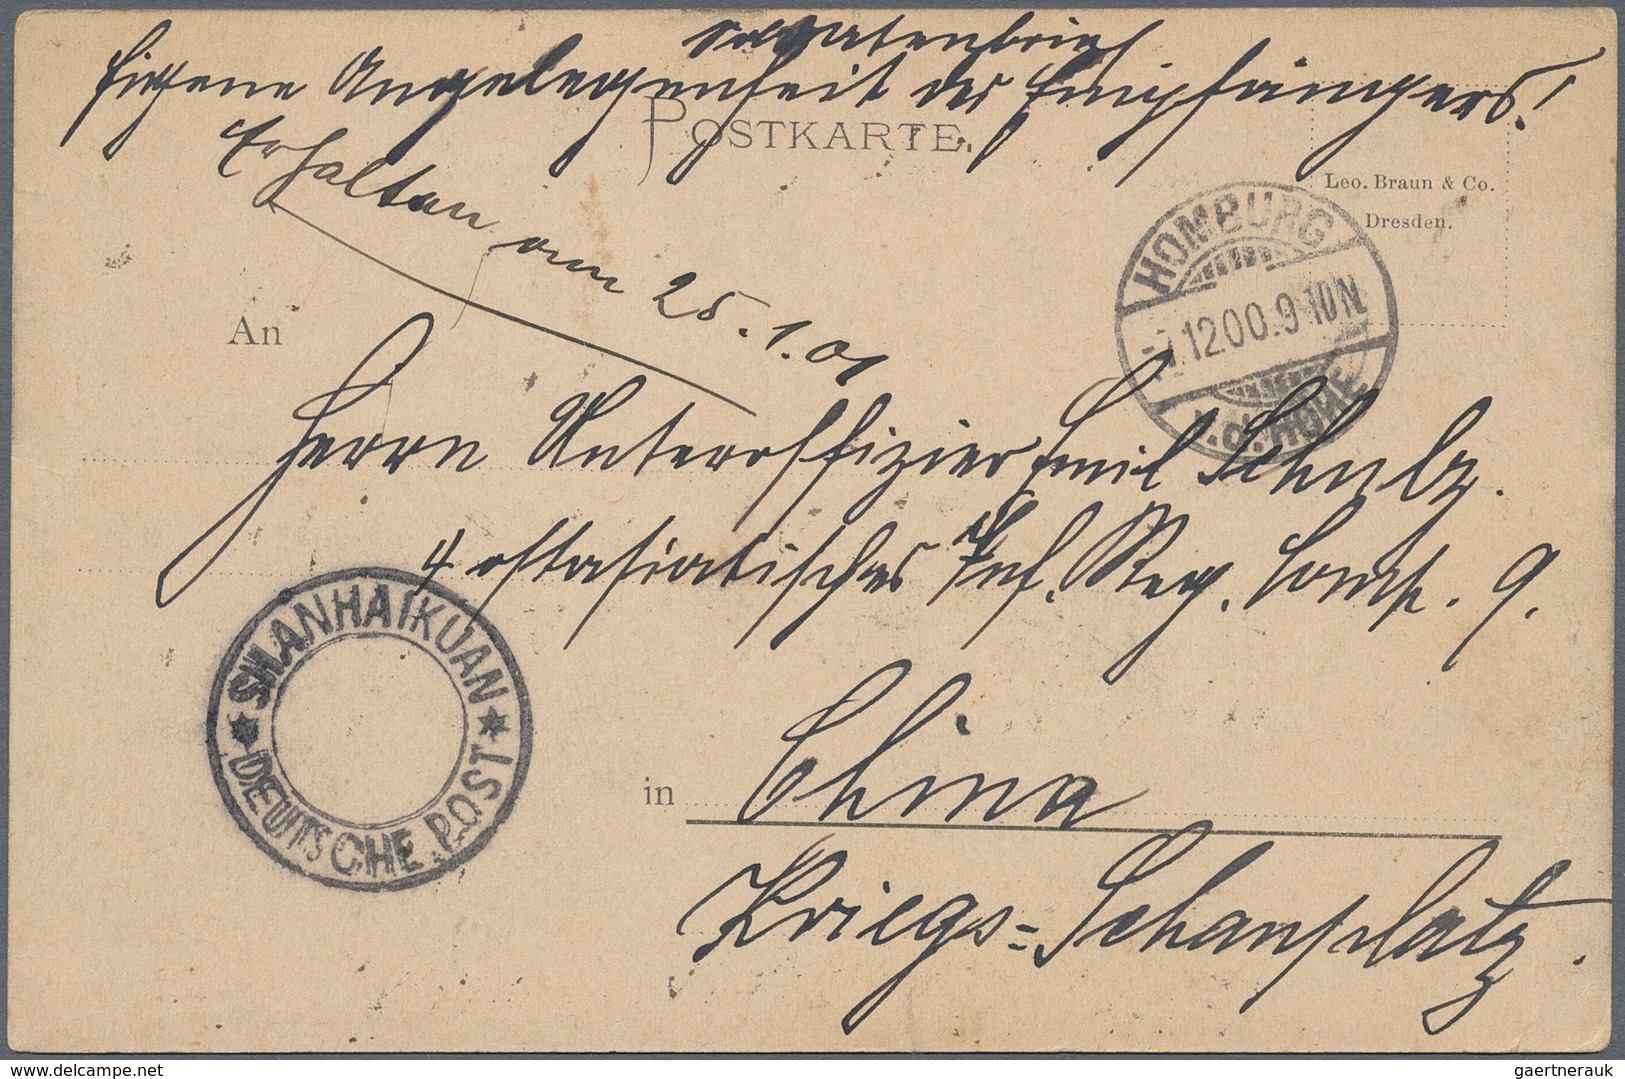 Soldatenbrief
Eigene Angelegenheit des Empfängers!
POSTKARTE.
Leo. Braun & Co.
Dresden.
Erhalten am 25.1.01
HOMBURG
12.00. 9-10N.
v.d. HÖHE
An
Herrn Unteroffizier Emil Schulz.
4 ostasiatisches Inf. Reg. Comp. 9.
SHANHAIKUAN
DEUTSCHE POST
in China
Kriegs=Schauplatz.
gaertnerauk
www.delcampe.net